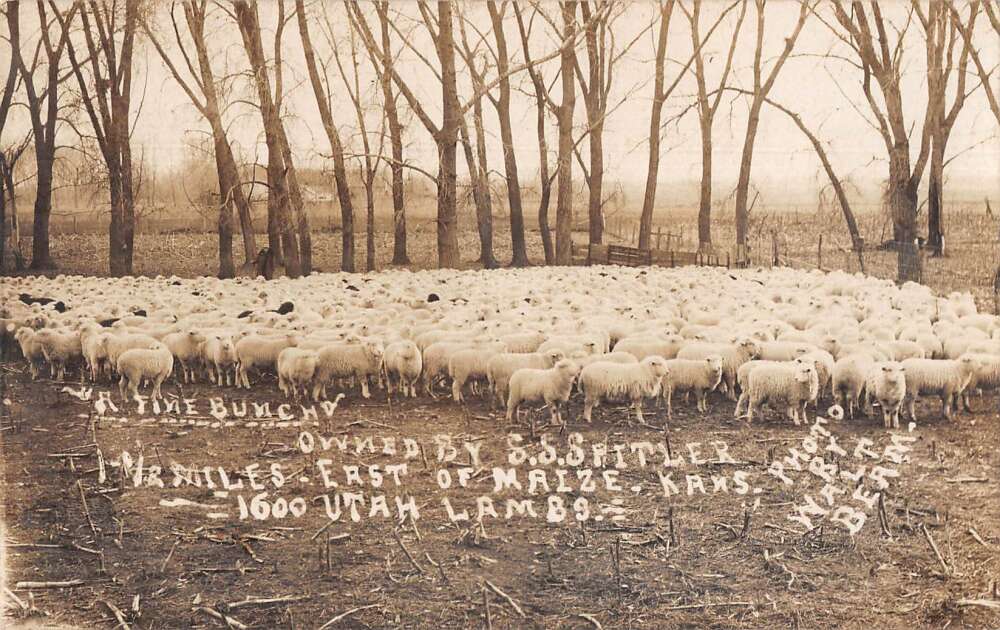 A FINE BUNCH
OWNED BY S.S. SPITLER
1-1/2 MILES - EAST OF MAIZE. KANS.
=1600 UTAH LAMBS.=
PHOTO
WARK
BEAR.